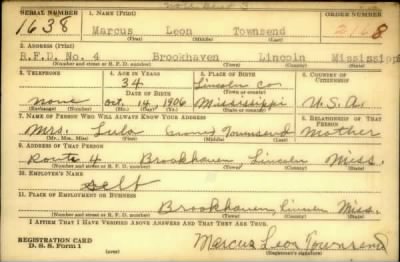 SERIAL NUMBER 1. NAME ORDER NUMBER
1638 Marcus Leon Townsend 2168
(First) (Middle) (Last)
2. ADDRESS
R.F.D. No. 4 Brookhaven Lincoln Mississippi
(Number and street or R. F. D. number) (Town) (County) (State)
3. TELEPHONE 4. AGE IN YEARS 5. PLACE OF BIRTH 6. COUNTRY OF CITIZENSHIP
34 Lincoln Co
DATE OF BIRTH (Town or county)
None Oct. 14, 1906 Mississippi U.S.A.
(Exchange) (Number) (Mo.) (Day) (Yr.) (State or country)
7. NAME OF PERSON WHO WILL ALWAYS KNOW YOUR ADDRESS 8. RELATIONSHIP OF THAT PERSON
Mrs. Lula Townsend Mother
(Mr., Mrs., Miss) (First) (Middle) (Last)
9. ADDRESS OF THAT PERSON
Route 4 Brookhaven, Lincoln Miss.
(Number and street or R. F. D. number) (Town) (County) (State)
10. EMPLOYER'S NAME
Self
11. PLACE OF EMPLOYMENT OR BUSINESS
Brookhaven, Lincoln Miss.
(Number and street or R. F. D. number) (Town) (County) (State)
I AFFIRM THAT I HAVE VERIFIED ABOVE ANSWERS AND THAT THEY ARE TRUE.
REGISTRATION CARD
D. S. S. Form 1
Marcus Leon Townsend
(Registrant's signature)